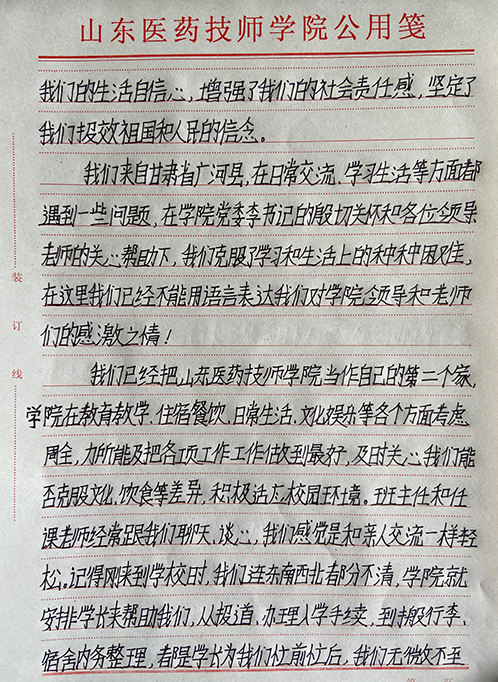 山东医药技师学院公用笺
我们的生活自信心，增强了我们的社会责任感，坚定了
我们报效祖国和人民的信念。
我们来自甘肃省广河县，在日常交流、学习生活等方面都
遇到一些问题，在学院党委李书记的殷切关怀和各位领导
老师的关心帮助下，我们克服了学习和生活上的种种困难，
在这里我们已经不能用语言表达我们对学院领导和老师
们的感激之情！
我们已经把山东医药技师学院当作自己的第二个家，
学院在教育教学、住宿餐饮、日常生活、文化娱乐等各个方面考虑
周全，力所能及把各项工作工作做到最好，及时关心我们能
否克服文化、饮食等差异，积极适应校园环境。班主任和任
课老师经常跟我们聊天、谈心，我们感觉是和亲人交流一样轻
松。记得刚来到学校时，我们连东南西北都分不清，学院就
安排学长来帮助我们，从报道、办理入学手续，到搬行李、
宿舍内务整理，都是学长为我们忙前忙后，我们无微不至
装
订
线